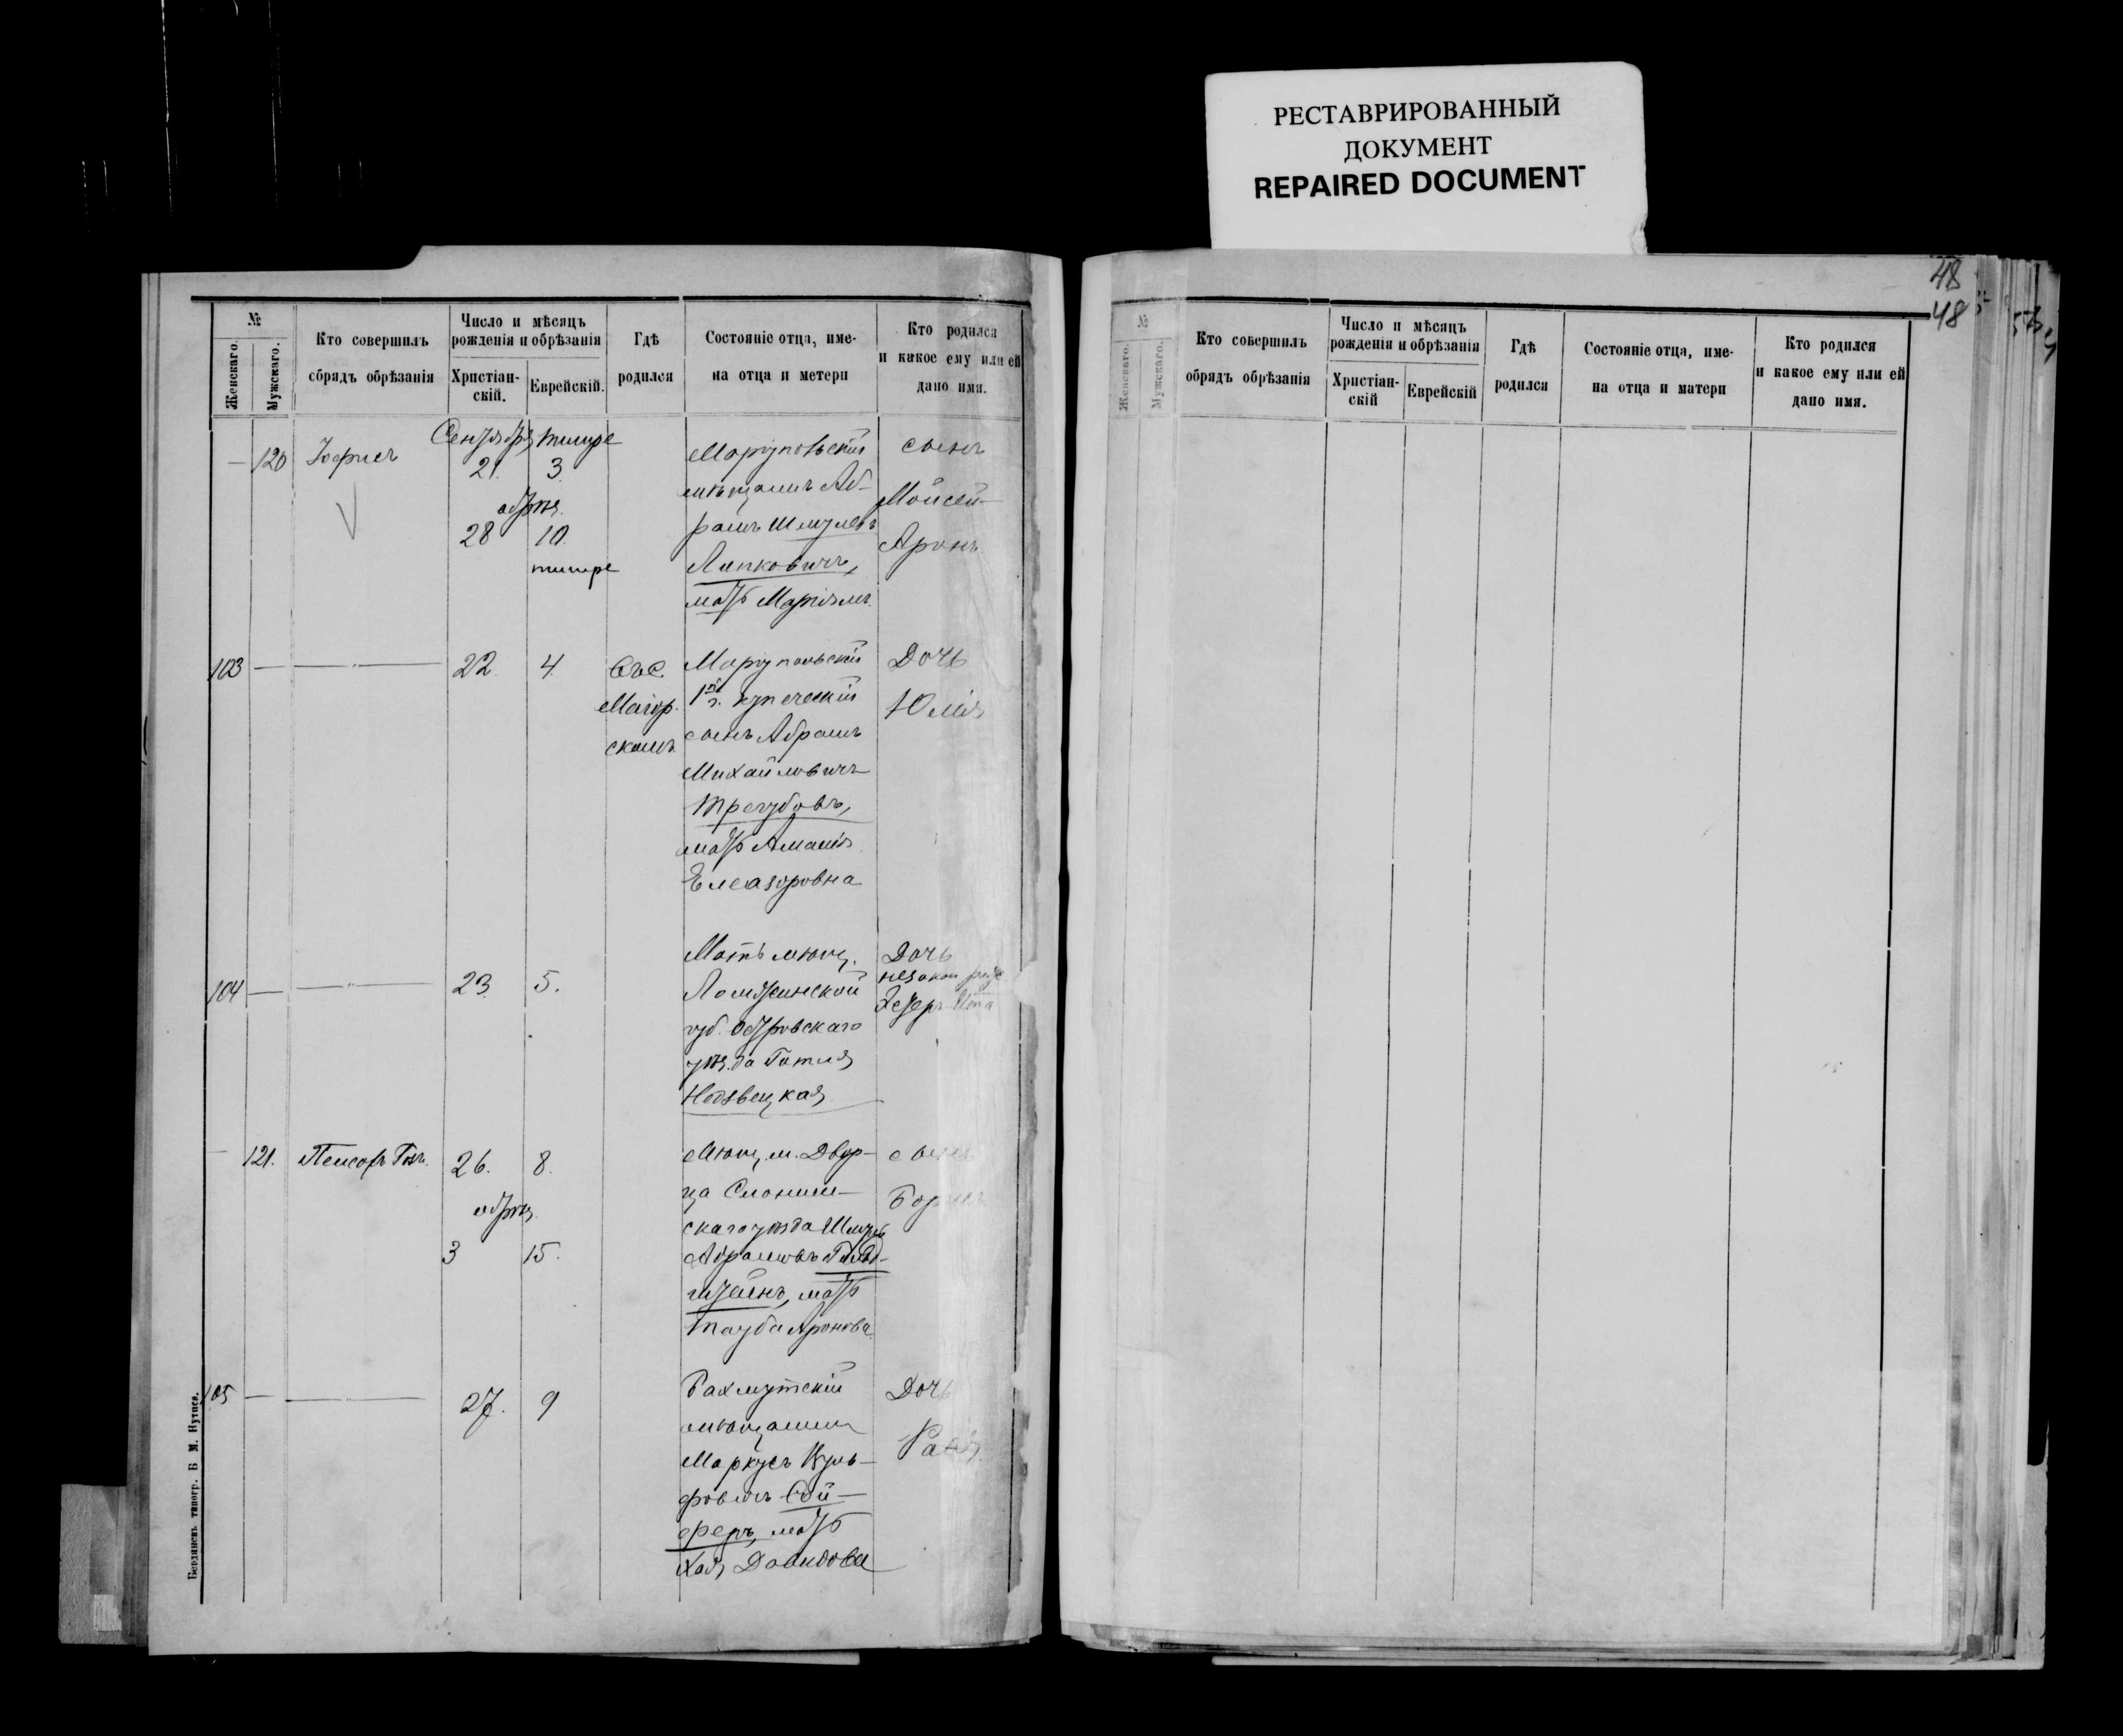 РЕСТАВРИРОВАННЫЙ
ДОКУМЕНТ
REPAIRED DOCUMENT
48
48
№
Женскаго.
Мужскаго.
Кто совершилъ
обрядъ обрѣзанія
Число и мѣсяцъ
рожденія и обрѣзанія
Христіан-
скій.
Еврейскій.
Гдѣ
родился
Состояніе отца, име-
на отца и метери
Кто родился
и какое ему или ей
дано имя.
— 120
Сентября тишре
21. 3.
28 10.
тишре
Маріупольскій
мѣщанинъ Аб-
рамъ Шмулевъ
Липковичъ,
мать Маріямъ.
сынъ
Мойсей-
Аронъ
103 —
22. 4.
Въ с.
Маіор.
скомъ.
Маріупольскій
1й г. купеческій
сынъ Абрамъ
Михайловичъ
Трегубовъ,
мать Амалія
Елеазаровна
Дочь
Юлія
104 —
23. 5.
Мать мѣщ.
Ломжинской
губ. Островскаго
уѣзда Гитля
Недзвецкая
Дочь
незакон.
— 121.
26. 8.
обрѣз.
3 15.
Мѣщ. м. Двор-
ца Слоним-
скаго уѣзда Шмуль
Абрамовъ Гольд-
штейнъ, мать
Тауба Аронова
сынъ
Борисъ
105 —
27. 9
Бахмутскій
мѣщанинъ
Маркусъ Вуль-
фовичъ Сой-
феръ, мать
Хая Давидова
Дочь
Бердянскъ типогр. Б. М. Нутиса.
№
Женскаго.
Мужскаго.
Кто совершилъ
обрядъ обрѣзанія
Число и мѣсяцъ
рожденія и обрѣзанія
Христіан-
скій
Еврейскій
Гдѣ
родился
Состояніе отца, име-
на отца и матери
Кто родился
и какое ему или ей
дано имя.